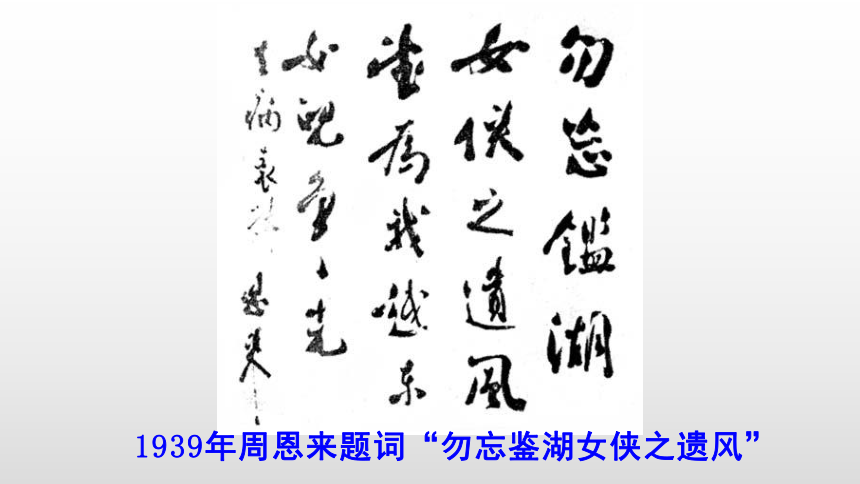 勿忘鑑湖
女俠之遺風
望為我越東
女兒爭光
去病表妹 恩來
1939年周恩来题词“勿忘鉴湖女侠之遗风”